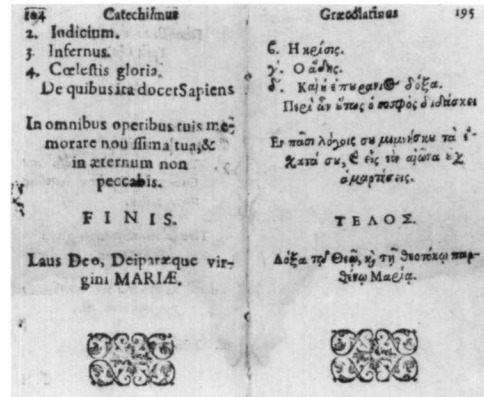 194 Catechismus
2. Iudicium.
3. Infernus.
4. Cœlestis gloria.
De quibus ita docet Sapiens
In omnibus operibus tuis me-
morare nouissima tua, &
in æternum non
peccabis.
FINIS.
Laus Deo, Deiparæque vir-
gini MARIÆ.
Græcolatinus 195
ϛ. Η κρίσις.
γ. Ο ἅδης.
δ. Καὶ ἡ ἐπυρανι δόξα.
Περὶ ὧν ὕτως ὁ σοφὸς διδάσκει
Εν πᾶσι λόγοις συ μιμνήσκυ τὰ ἔ-
χατά συ, & εἰς τὸν αἰῶνα ὐχ
ἁμαρτήσεις.
ΤΕΛΟΣ.
Δόξα τῷ Θεῷ, κ τῇ θεοτόκῳ παρ-
θένῳ Μαρίᾳ.